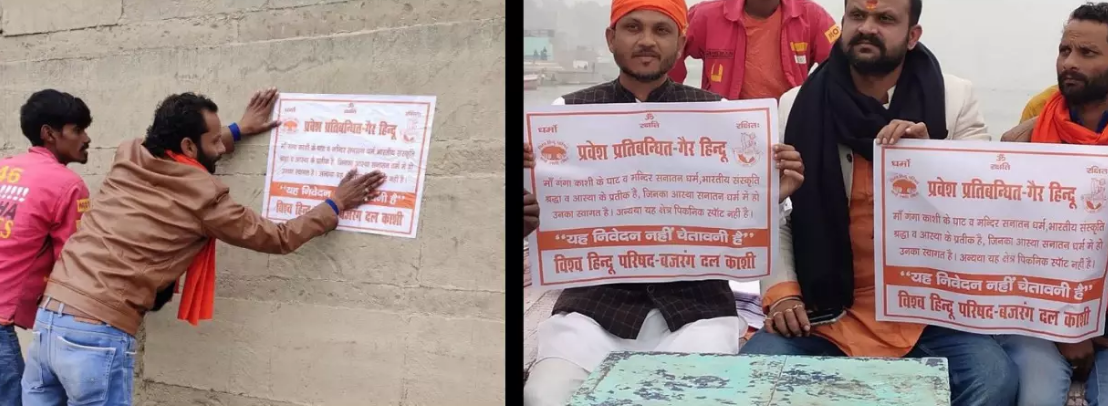 ॐ
प्रवेश प्रतिबन्धित-गैर हिन्दू
श्रद्धा व आस्था के प्रतीक है, जिनका आस्था सनातन धर्म में हो
उनका स्वागत है। अन्यथा यह क्षेत्र पिकनिक स्पॉट नहीं है।
"यह निवेदन
विश्व हिन्दू परिषद दल काशी
धर्मो
ॐ
रक्षितः
प्रवेश प्रतिबन्धित-गैर हिन्दू
माँ गंगा काशी के घाट व मन्दिर सनातन धर्म,भारतीय संस्कृति
श्रद्धा व आस्था के प्रतीक है, जिनका आस्था सनातन धर्म में हो
उनका स्वागत है। अन्यथा यह क्षेत्र पिकनिक स्पॉट नहीं है।
"यह निवेदन नहीं चेतावनी है"
विश्व हिन्दू परिषद-बजरंग दल काशी
धर्मो
ॐ
रक्षितः
प्रवेश प्रतिबन्धित-गैर हिन्दू
माँ गंगा काशी के घाट व मन्दिर सनातन धर्म,भारतीय संस्कृति
श्रद्धा व आस्था के प्रतीक है, जिनका आस्था सनातन धर्म में हो
उनका स्वागत है। अन्यथा यह क्षेत्र पिकनिक स्पॉट नहीं है।
"यह निवेदन नहीं चेतावनी है"
विश्व हिन्दू परिषद-बजरंग दल काशी